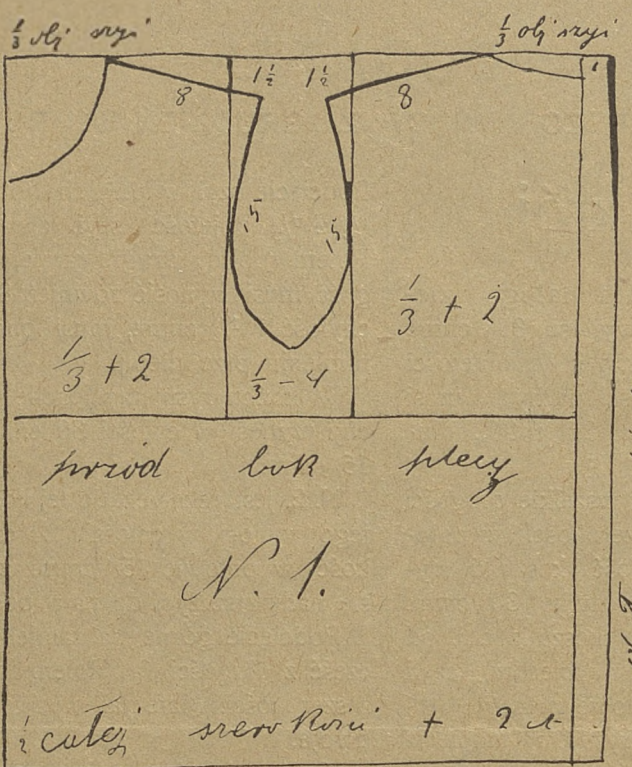 1/3 obj szyi 1/3 obj szyi
1 1/2 1 1/2
8 8
,5 ,5
1/3 + 2
1/3 + 2 1/3 - 4
przód bok plecy
N. 1.
1/2 całej szerokości + 2